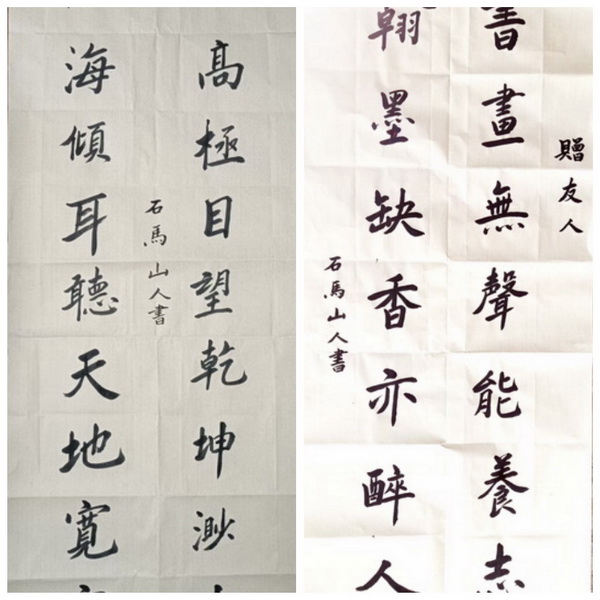 髙極目望乾坤渺
石馬山人書
海傾耳聽天地寬
贈友人
書畫無聲能養志
翰墨缺香亦醉人
石馬山人書